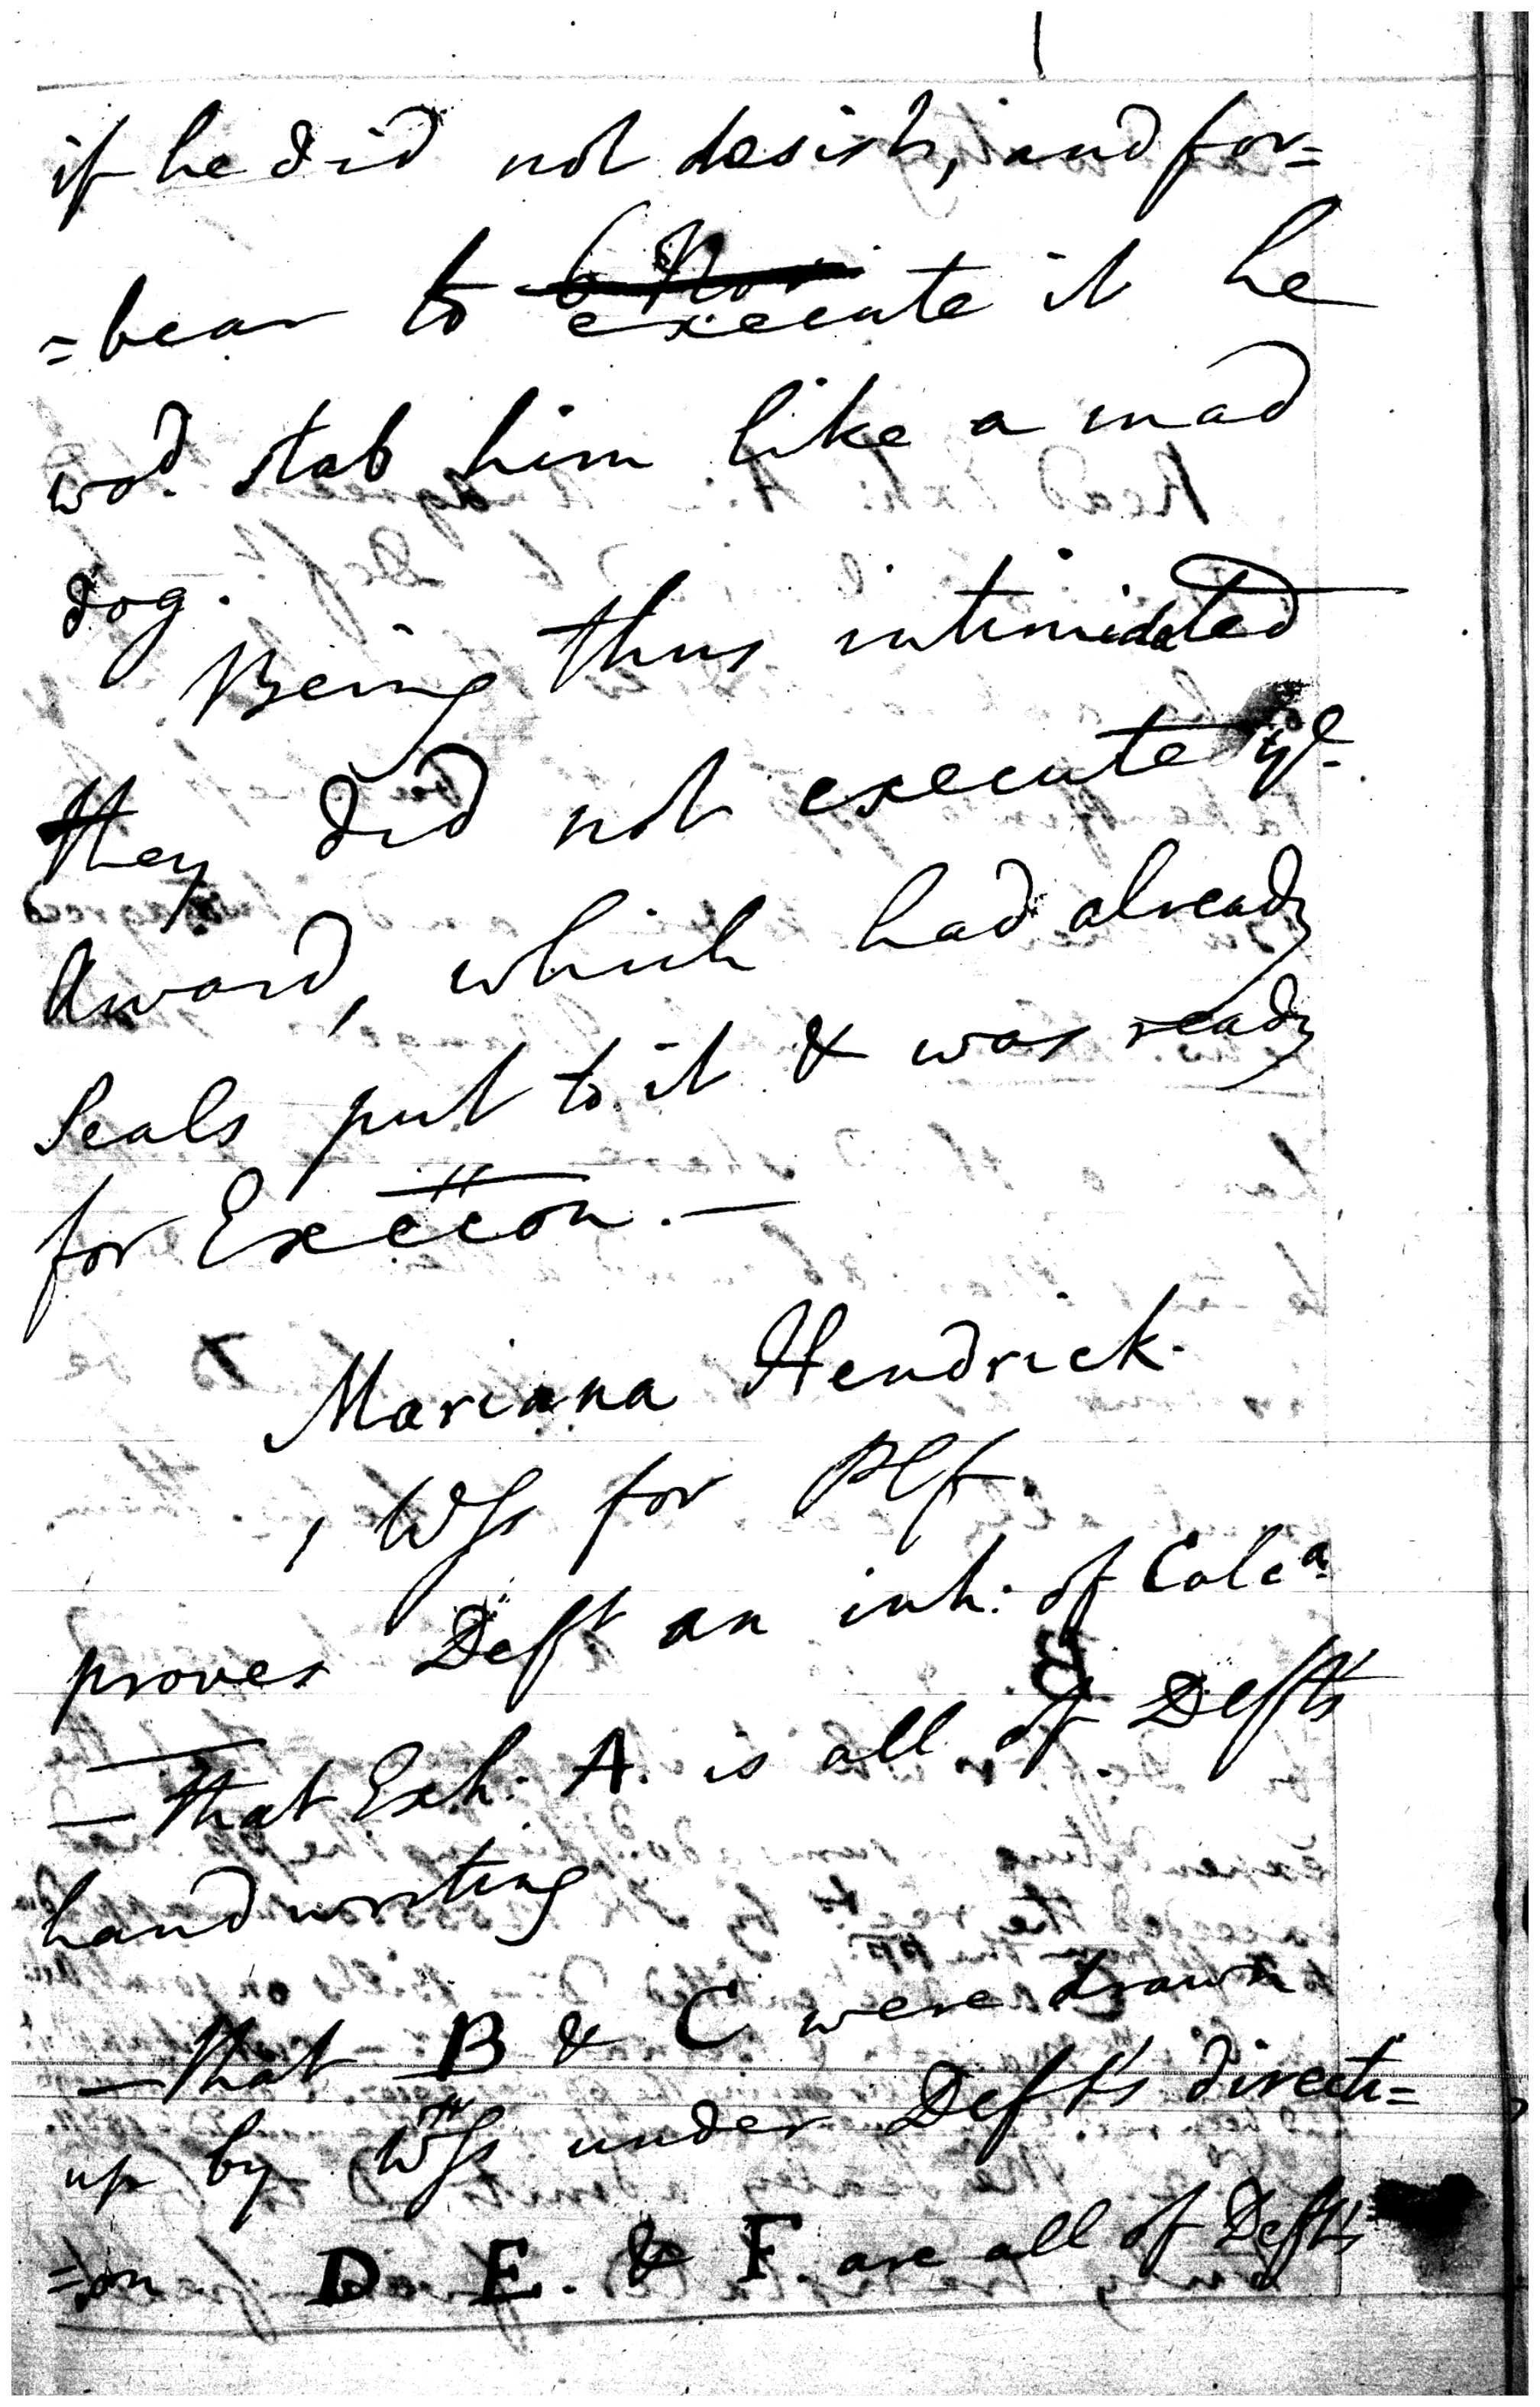 if he did not desist, and for=
=bear to execute it he
wod. stab him like a mad
dog.
Being thus intimidated
they did not execute ye
Award, which had already
Seals put to it & was ready
for Execcon. —
Mariana Hendrick.
Wss for Plf.
proves Deft an inh: of Calca.
— That Exh: A. is all of Deft's
handwriting
— That B & C were drawn
up by Wss under Deft's directi=
=on D E. & F. are all of Deft's